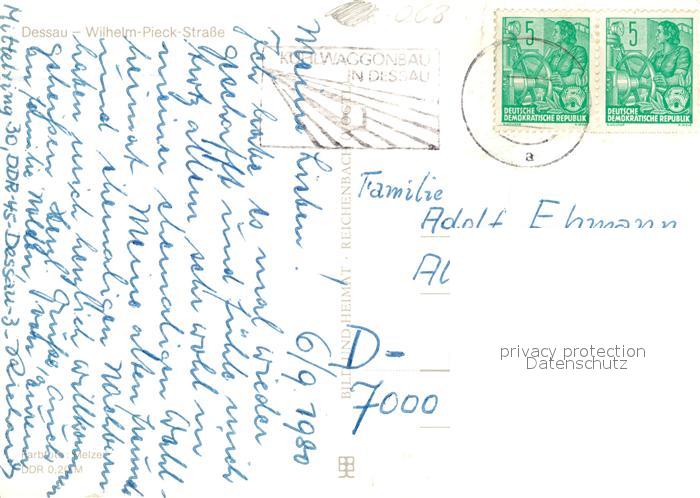 Dessau – Wilhelm-Pieck-Straße
063
KÜHLWAGGONBAU
IN DESSAU
5
DEUTSCHE
DEMOKRATISCHE REPUBLIK
5
DEUTSCHE
DEMOKRATISCHE REPUBLIK
a
6/9. 1980
Meine Lieben!
Ich habe es mal wieder
geschafft und fühle mich
trotz allem sehr wohl in
meiner ehemaligen Wahl-
heimat. Meine alten Freunde
und ehemaligen Nachbarn
haben mich herzlich willkommen
geheißen. Herzl. Grüße, auch
an Familie
Mittelring 30 DDR-45-Dessau-3-
Familie
Adolf Ehmann
Al
D-
7000
BILD UND HEIMAT · REICHENBACH
Farbfoto: Melzer
DDR 0,20 M
privacy protection
Datenschutz